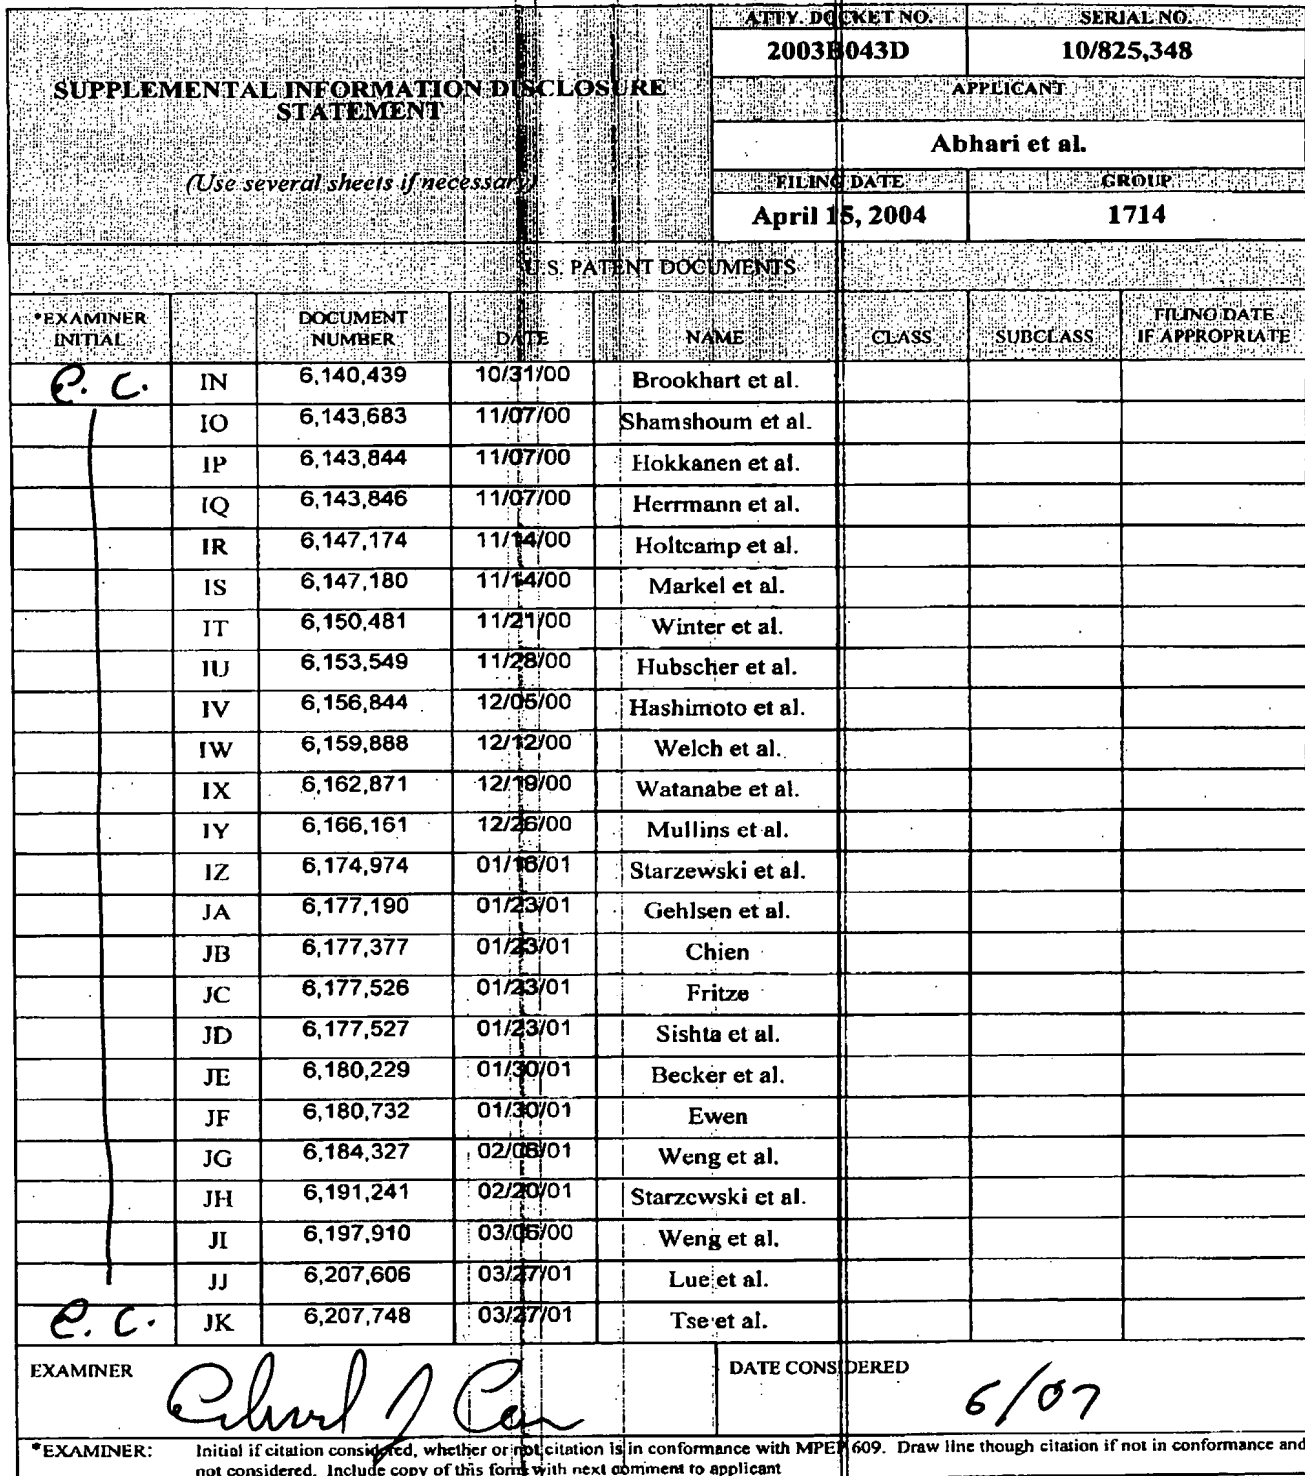 ATTY. DOCKET NO. SERIAL NO.
2003B043D 10/825,348
SUPPLEMENTAL INFORMATION DISCLOSURE
STATEMENT
APPLICANT
Abhari et al.
(Use several sheets if necessary)
FILING DATE GROUP
April 15, 2004 1714
U.S. PATENT DOCUMENTS
*EXAMINER INITIAL DOCUMENT NUMBER DATE NAME CLASS SUBCLASS FILING DATE IF APPROPRIATE
e. c. IN 6,140,439 10/31/00 Brookhart et al.
IO 6,143,683 11/07/00 Shamshoum et al.
IP 6,143,844 11/07/00 Hokkanen et al.
IQ 6,143,846 11/07/00 Herrmann et al.
IR 6,147,174 11/14/00 Holtcamp et al.
IS 6,147,180 11/14/00 Markel et al.
IT 6,150,481 11/21/00 Winter et al.
IU 6,153,549 11/28/00 Hubscher et al.
IV 6,156,844 12/05/00 Hashimoto et al.
IW 6,159,888 12/12/00 Welch et al.
IX 6,162,871 12/19/00 Watanabe et al.
IY 6,166,161 12/26/00 Mullins et al.
IZ 6,174,974 01/16/01 Starzewski et al.
JA 6,177,190 01/23/01 Gehlsen et al.
JB 6,177,377 01/23/01 Chien
JC 6,177,526 01/23/01 Fritze
JD 6,177,527 01/23/01 Sishta et al.
JE 6,180,229 01/30/01 Becker et al.
JF 6,180,732 01/30/01 Ewen
JG 6,184,327 02/06/01 Weng et al.
JH 6,191,241 02/20/01 Starzewski et al.
JI 6,197,910 03/06/00 Weng et al.
JJ 6,207,606 03/27/01 Lue et al.
e. c. JK 6,207,748 03/27/01 Tse et al.
EXAMINER DATE CONSIDERED
6/07
*EXAMINER: Initial if citation considered, whether or not citation is in conformance with MPEP 609. Draw line though citation if not in conformance and
not considered. Include copy of this form with next comment to applicant